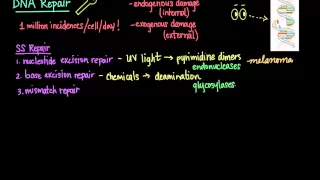 DNA Repair
- endogenous damage
(internal)
1 million incidences/cell/day!
- exogenous damage
(external)
SS Repair
1. nucleotide excision repair - UV light → pyrimidine dimers - melanoma
endonucleases
2. base excision repair - chemicals → deamination
glycosylases
3. mismatch repair